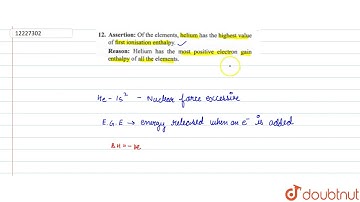 12227302
12. Assertion: Of the elements, helium has the highest value
of first ionisation enthalpy.
Reason: Helium has the most positive electron gain
enthalpy of all the elements.
He - 1s² - Nuclear force excessive
E.G.E → energy released when an e⁻ is added
ΔH = - ve
doubtnut